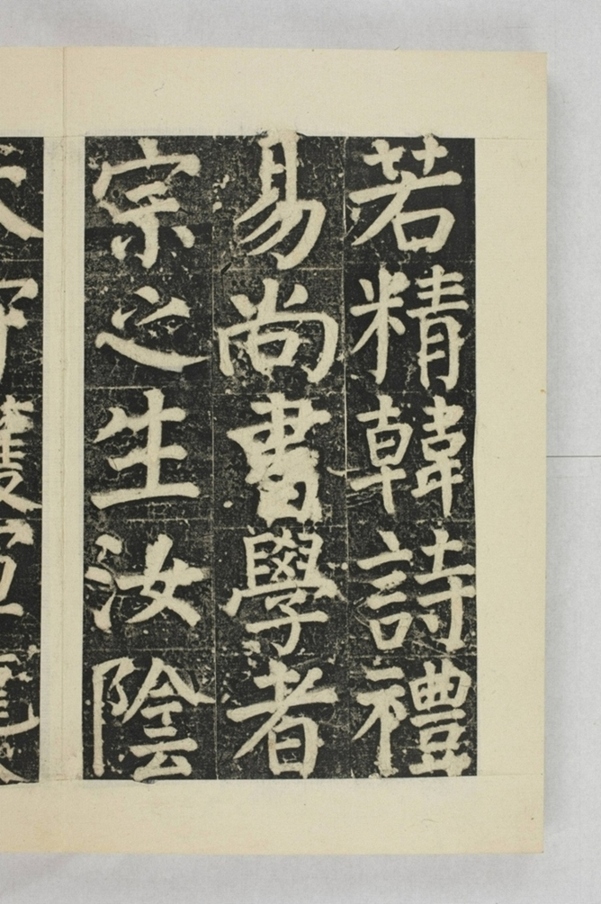 若精韓詩禮
易尚書學者
宗之生汝陰